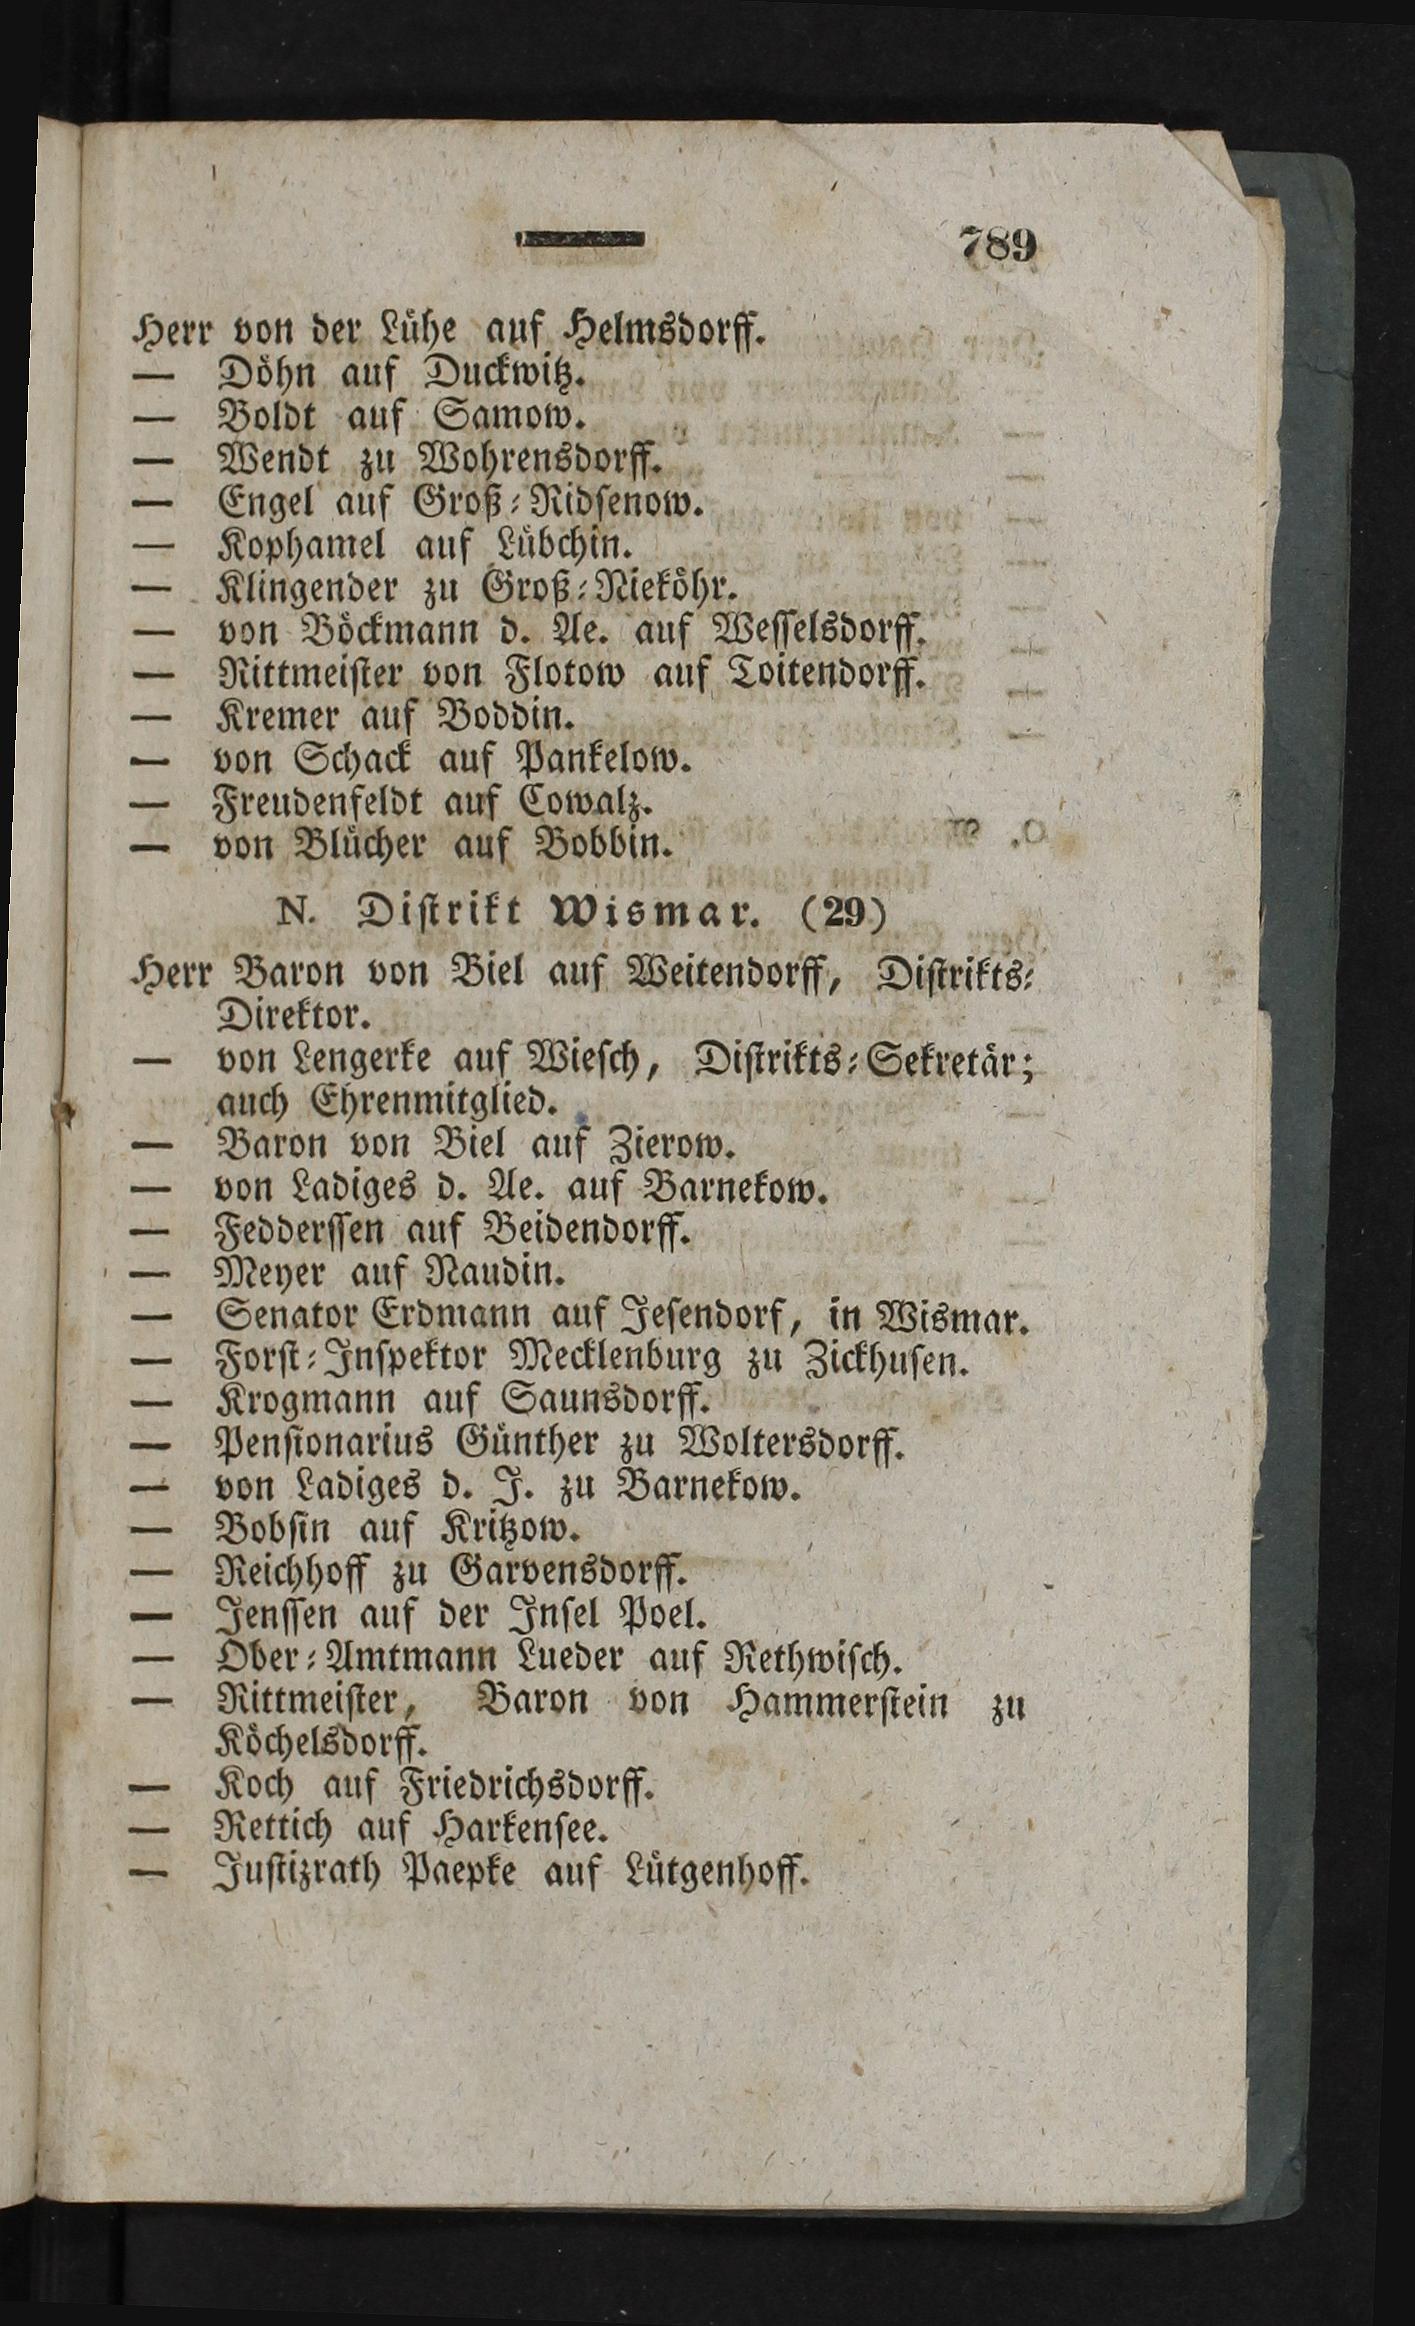 789
Herr von der Lühe auf Helmsdorff.
— Döhn auf Duckwitz.
— Boldt auf Samow.
— Wendt zu Wohrensdorff.
— Engel auf Groß-Ridsenow.
— Kophamel auf Lübchin.
— Klingender zu Groß-Nieköhr.
— von Böckmann d. Ae. auf Wesselsdorff.
— Rittmeister von Flotow auf Toitendorff.
— Kremer auf Boddin.
— von Schack auf Pankelow.
— Freudenfeldt auf Cowalz.
— von Blücher auf Bobbin.
N. Distrikt Wismar. (29)
Herr Baron von Biel auf Weitendorff, Distrikts-
Direktor.
— von Lengerke auf Wiesch, Distrikts-Sekretär;
auch Ehrenmitglied.
— Baron von Biel auf Zierow.
— von Ladiges d. Ae. auf Barnekow.
— Fedderssen auf Beidendorff.
— Meyer auf Naudin.
— Senator Erdmann auf Jesendorf, in Wismar.
— Forst-Inspektor Mecklenburg zu Zickhusen.
— Krogmann auf Saunsdorff.
— Pensionarius Günther zu Woltersdorff.
— von Ladiges d. J. zu Barnekow.
— Bobsin auf Kritzow.
— Reichhoff zu Garvensdorff.
— Jenssen auf der Insel Poel.
— Ober-Amtmann Lueder auf Rethwisch.
— Rittmeister, Baron von Hammerstein zu
Köchelsdorff.
— Koch auf Friedrichsdorff.
— Rettich auf Harkensee.
— Justizrath Paepke auf Lütgenhoff.